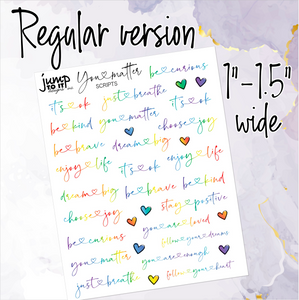 Regular version
jump to it! You matter be curious
SCRIPTS
it's ok just breathe it's ok
be kind you matter choose joy
be brave dream big
enjoy life it's ok enjoy life
dream big be brave be kind
choose joy stay positive
be curious you are loved
follow your dreams
you matter you are enough
just breathe follow your heart
1"-1.5"
wide